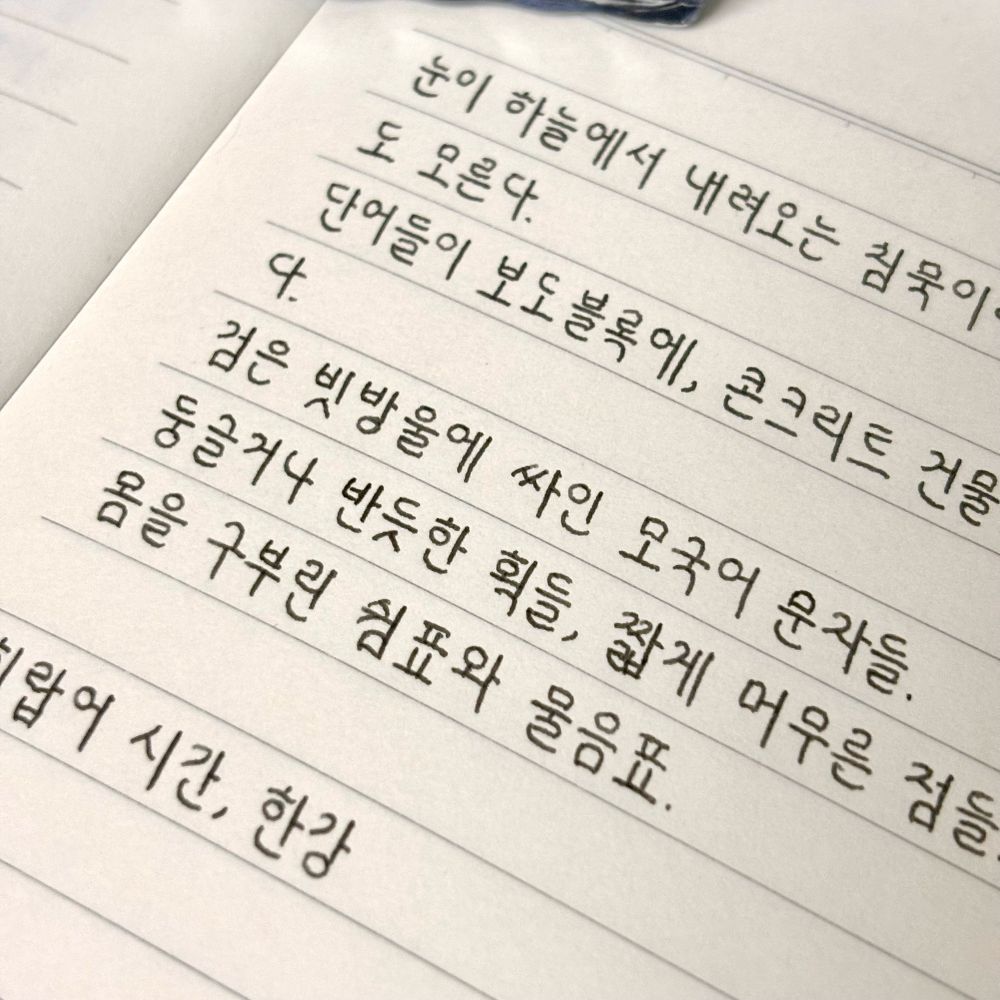 눈이 하늘에서 내려오는 침묵이
도 모른다.
단어들이 보도블록에, 콘크리트 건물
다.
검은 빗방울에 싸인 모국어 문자들.
둥글거나 반듯한 획들, 짧게 머무른 점들.
몸을 구부린 쉼표와 물음표.
희랍어 시간, 한강